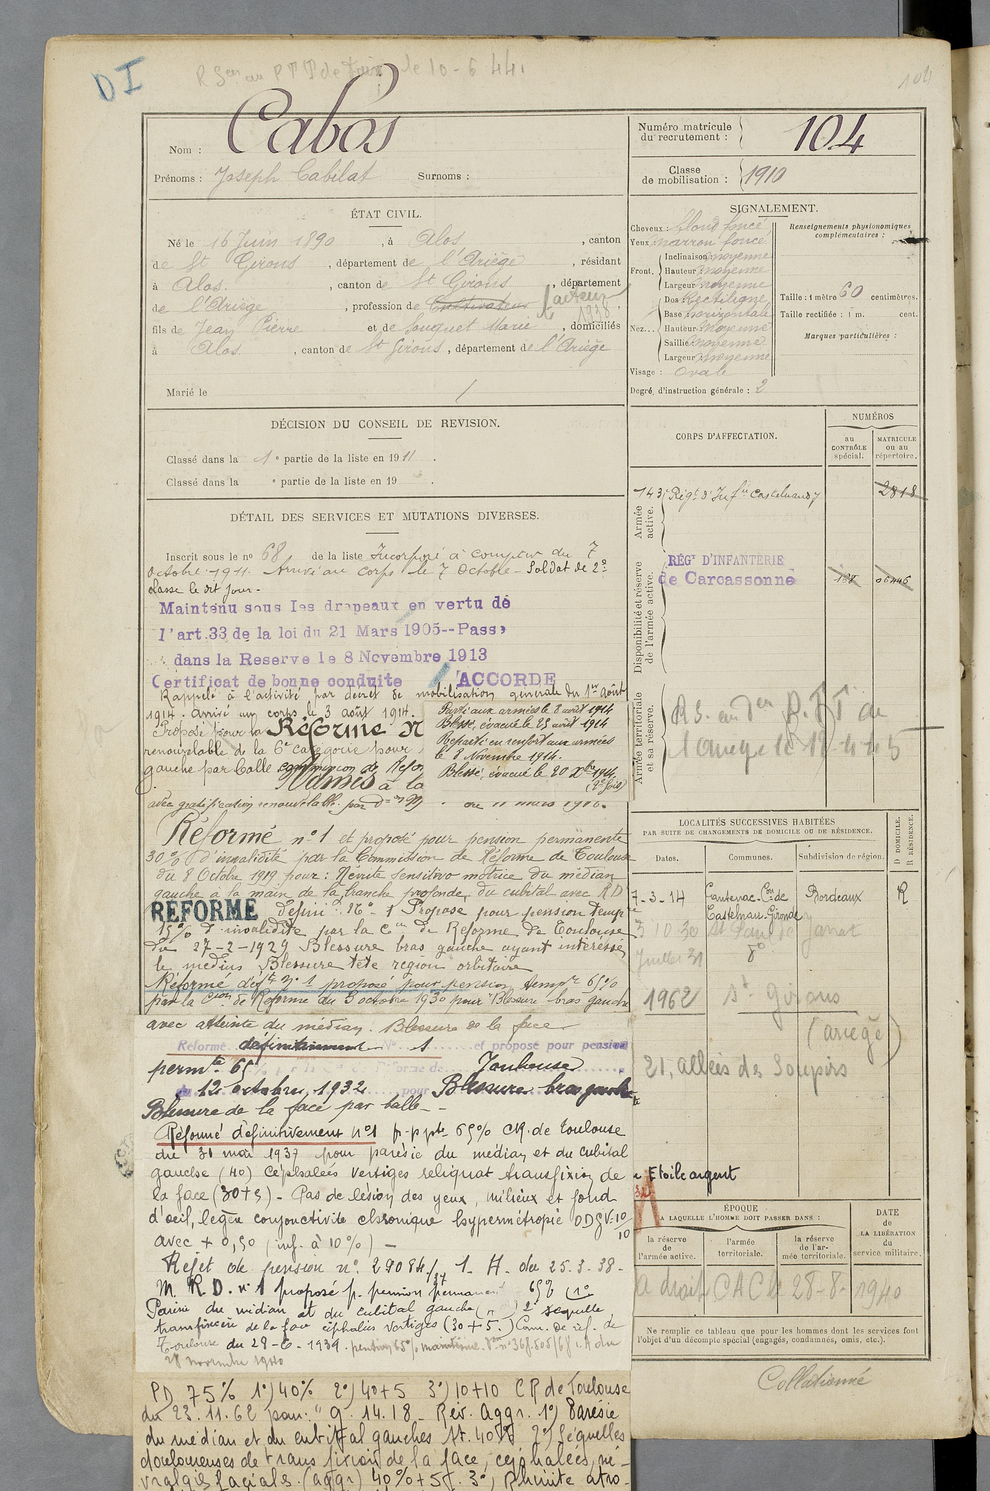 DI
104
Cabos
Nom :
Prénoms : Joseph Cabilat Surnoms :
Numéro matricule du recrutement : 104
Classe de mobilisation : 1910
ÉTAT CIVIL.
Né le 16 Juin 1890, à Alos, canton
de St Girons, département de l'Ariège, résidant
à Alos, canton de St Girons, département
de l'Ariège, profession de Cultivateur facteur
1938
fils de Jean Pierre et de Souquet Marie, domiciliés
à Alos, canton de St Girons, département de l'Ariège
Marié le /
SIGNALEMENT.
Cheveux : blond foncé
Yeux marron foncé
Front. Inclinaison moyenne
Hauteur moyenne
Largeur moyenne
Nez. Dos Rectiligne
Base horizontale
Hauteur moyenne
Saillie moyenne
Largeur moyenne
Visage : ovale
Degré d'instruction générale : 2
Renseignements physionomiques complémentaires :
Taille : 1 mètre 60 centimètres.
Taille rectifiée : 1 m. cent.
Marques particulières :
DÉCISION DU CONSEIL DE REVISION.
Classé dans la 1e partie de la liste en 1911.
Classé dans la e partie de la liste en 19
DÉTAIL DES SERVICES ET MUTATIONS DIVERSES.
Inscrit sous le no 68 de la liste Incorporé à compter du 7
octobre 1911. Arrivé au corps le 7 Octobre - Soldat de 2e
classe le dit jour.
Maintenu sous les drapeaux en vertu de
l'art.33 de la loi du 21 Mars 1905--Passé
dans la Reserve le 8 Novembre 1913
Certificat de bonne conduite ACCORDE
Rappelé à l'activité par décret de mobilisation générale du 1er août
1914. Arrivé au corps le 3 août 1914.
Parti aux armées le 8 août 1914
Blessé, évacué le 25 août 1914
Reparti en renfort aux armées
le 8 Novembre 1914.
Blessé, évacué le 20 Xbre 1914
(2e fois)
Proposé pour la Réforme N
renouvelable de la 6e catégorie pour
gauche par balle commission de Réfor
Nîmes à la
avec gratification renouvelable par du 11 mars 1916.
Réformé no 1 et proposé pour pension permanente
30% d'invalidité par la Commission de Réforme de Toulouse
du 8 Octobre 1919 pour : Névrite sensitivo motrice du médian
gauche à la main de la branche profonde, du cubital avec RD
RÉFORMÉ définif No 1 Proposé pour pension temp
15% d'invalidité par la Con de Réforme de Toulouse
du 27-2-1929 Blessure bras gauche ayant intéressé
le médius Blessure tête région orbitaire
Réformé déft no 1 proposé pour pension tempre 65%
par la Cion de Réforme du 3 octobre 1930 pour Blessure bras gauche
avec atteinte du médian. Blessure de la face
Réformé définitivement No 1 et proposé pour pension
permte 65% Toulouse
du 12 octobre 1932 pour Blessure bras gauche
Blessure de la face par balle -
Réformé définitivement no1 p-p ppte 65% CR. de Toulouse
du 31 mai 1937 pour parésie du médian et du cubital
gauche (40) céphalées vertiges reliquat transfixion de
la face (30+5) - Pas de lésion des yeux, milieux et fond
d'œil, légère conjonctivite chronique hypermétropie ODGV=10/10
avec + 0,50 (inf. à 10%) -
Rejet de pension no. 29084/1. H. du 25.3.38-
M. R.D. no 1 proposé p. pension permanent 65% (1o
Parésie du médian et du cubital gauche 2o sequelle
transfixion de la face céphalées vertiges (30+5.) Com. de réf. de
Toulouse du 29-6-1939. pension 65% maintenue
28 novembre 1940
PD 75% 1o) 40% 2o) 40+5 3o) 10+10 CR de Toulouse
du 23.11.62 pour : "g. 14.18 - Rev. Aggr. 1o) Parésie
du médian et du cubital gauches St. 40% 2o) Séquelles
douloureuses de transfixion de la face, céphalées, né-
vralgies faciales. (aggr) 40%+5. 3o) Rhinite atro-
CORPS D'AFFECTATION.
NUMÉROS
au CONTRÔLE spécial.
MATRICULE ou au répertoire.
Armée active.
143e Régt d'Infie Castelnaudary 2818
Disponibilité et réserve de l'armée active.
RÉGT D'INFANTERIE
de Carcassonne
Armée territoriale et sa réserve.
LOCALITÉS SUCCESSIVES HABITÉES
PAR SUITE DE CHANGEMENTS DE DOMICILE OU DE RÉSIDENCE.
Dates. Communes. Subdivision de région. D DOMICILE. R RÉSIDENCE.
7-3-14 Cantenac-Con de Castelnau-Gironde Bordeaux R
3 10 30
Juillet 31 do
1962 St Girons
(ariège)
21, allées des Soupirs
Etoile argent
ÉPOQUE
À LAQUELLE L'HOMME DOIT PASSER DANS :
la réserve de l'armée active.
l'armée territoriale.
la réserve de l'armée territoriale.
DATE de LA LIBÉRATION du service militaire.
A droit CAC le 28-8-1940
Ne remplir ce tableau que pour les hommes dont les services font
l'objet d'un décompte spécial (engagés, condamnés, omis, etc.).
Collationné